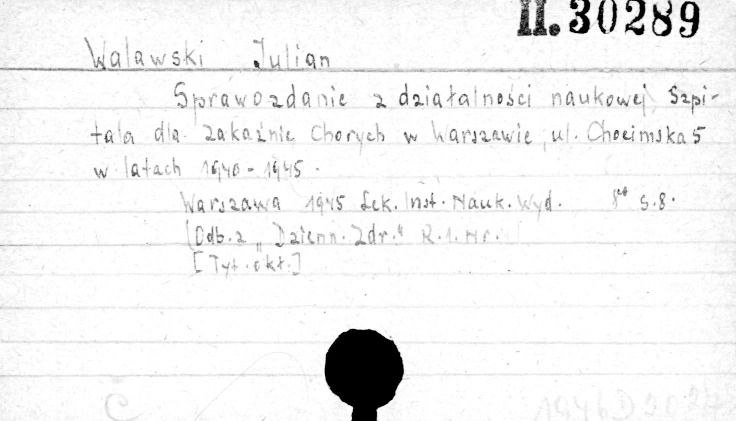 II. 30289
Walawski Julian
Sprawozdanie z działalności naukowej Szpi-
tala dla zakaźnie chorych w Warszawie, ul. Chocimska 5
w latach 1940-1945.
Warszawa 1945 Lek. Inst. Nauk. Wyd. 8° s. 8.
[Odb. z „Dzienn. Zdr." R. 1. Nr.
[Tyt. okł.]
C 1946 D